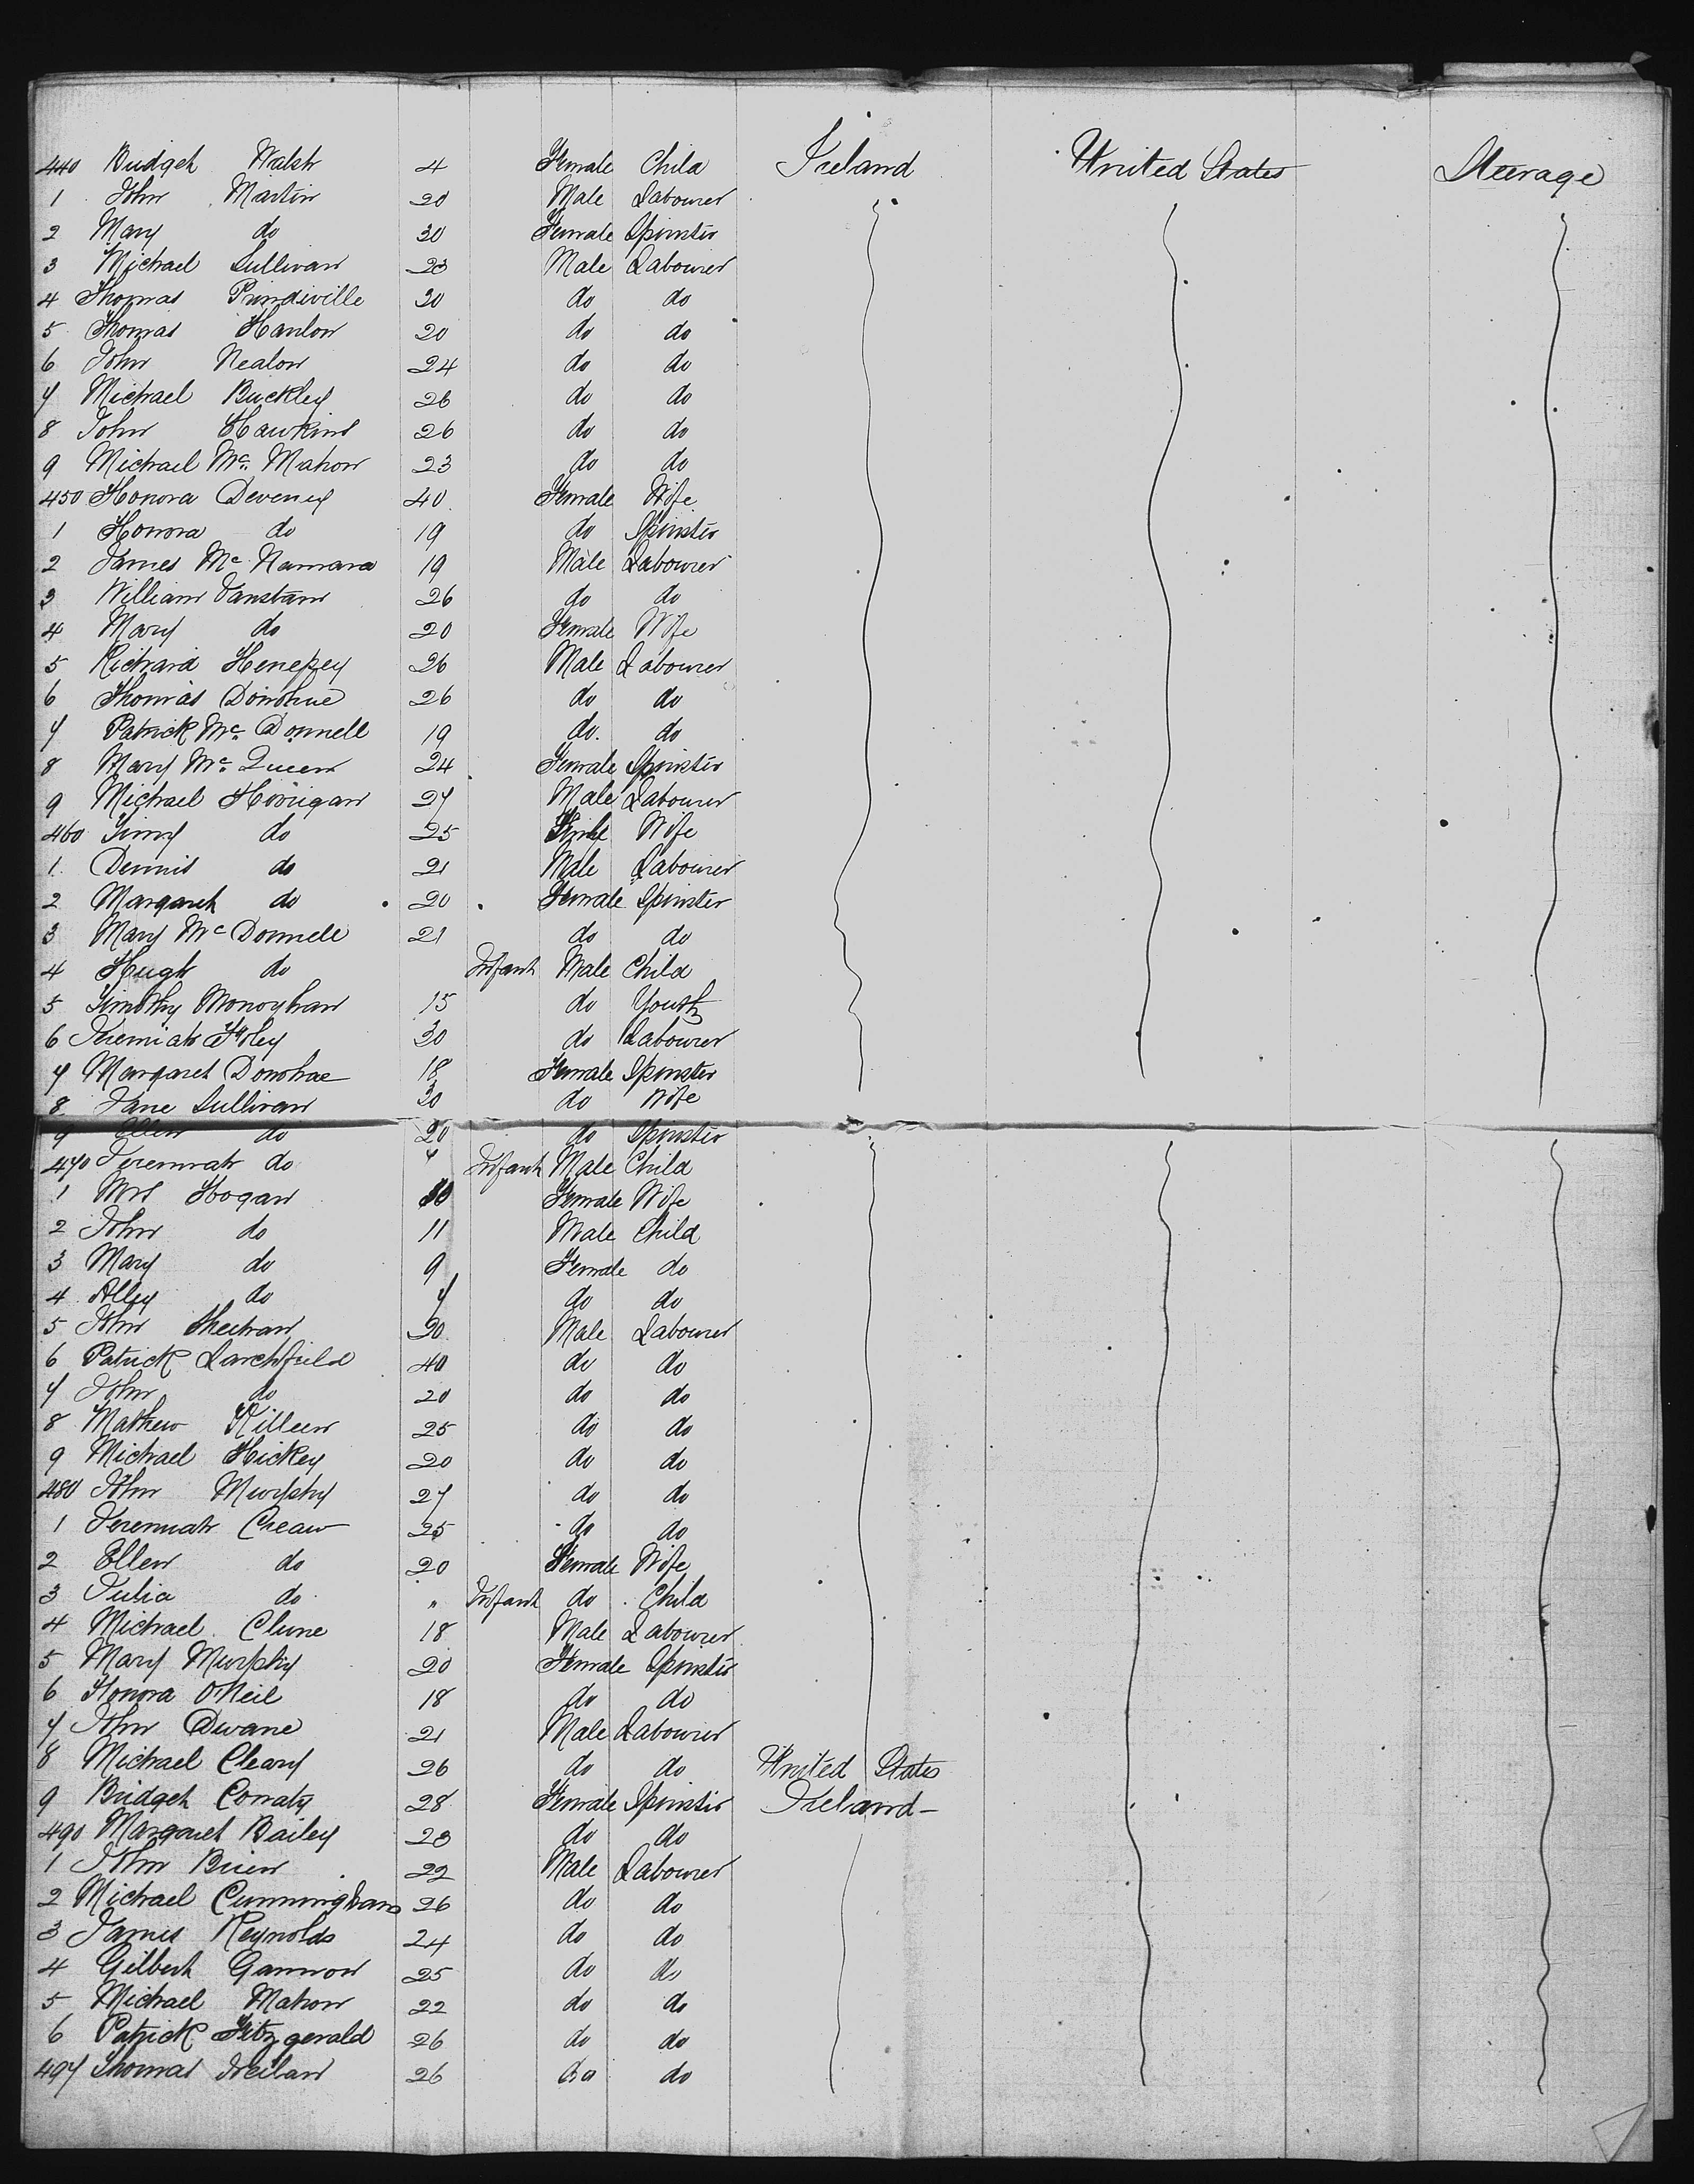 440 Bridget Walsh 4 Female Child Ireland United States Steerage
1 John Martin 20 Male Labourer
2 Mary do 30 Female Spinster
3 Michael Sullivan 23 Male Labourer
4 Thomas Prindiville 30 do do
5 Thomas Hanlon 20 do do
6 John Nealon 24 do do
7 Michael Buckley 26 do do
8 John Hawkins 26 do do
9 Michael Mc. Mahon 23 do do
450 Honora Deveney 40 Female Wife
1 Honora do 19 do Spinster
2 James Mc Namara 19 Male Labourer
3 William 26 do do
4 Mary do 20 Female Wife
5 Richard 26 Male Labourer
6 Thomas Donohue 26 do do
7 Patrick Mc. Donnell 19 do. do
8 Mary Mc. Queen 24 Female Spinster
9 Michael Horrigan 27 Male Labourer
460 do 25 Wife
1. Dennis do 21 Male Labourer
2 Margaret do 20 Female Spinster
3 Mary Mc Donnell 21 do do
4 Hugh do Infant Male Child
5 Timothy Monoghan 15 do Youth
6 Jeremiah Foley 30 do Labourer
7 Margaret Donohae 18 Female Spinster
8 Jane Sullivan 30 do Wife
9 Ellen do 20 do Spinster
470 Jeremiah do " Infant Male Child
1 Mrs Hogan Female Wife
2 John do 11 Male Child
3 Mary do 9 Female do
4 Alley do 7 do do
5 John Sheehan 30 Male Labourer
6 Patrick Larchfield 40 do do
7 John do 20 do do
8 Mathew Killeen 25 do do
9 Michael Hickey 20 do do
480 John Murphy 27 do do
1 Jeremiah Crean 25 do do
2 Ellen do 20 Female Wife
3 Julia do " Infant do Child
4 Michael Clune 18 Male Labourer
5 Mary Murphy 20 Female Spinster
6 Honora O'Neil 18 do do
7 John Dwane 21 Male Labourer
8 Michael Cleary 26 do do United States
9 Bridget Conaty 28 Female Spinster Ireland
490 Margaret Bailey 23 do do
1 John Brien 22 Male Labourer
2 Michael Cunningham 26 do do
3 James Reynolds 24 do do
4 Gilbert Gannon 25 do do
5 Michael Mahon 22 do do
6 Patrick Fitzgerald 26 do do
497 Thomas 26 do do